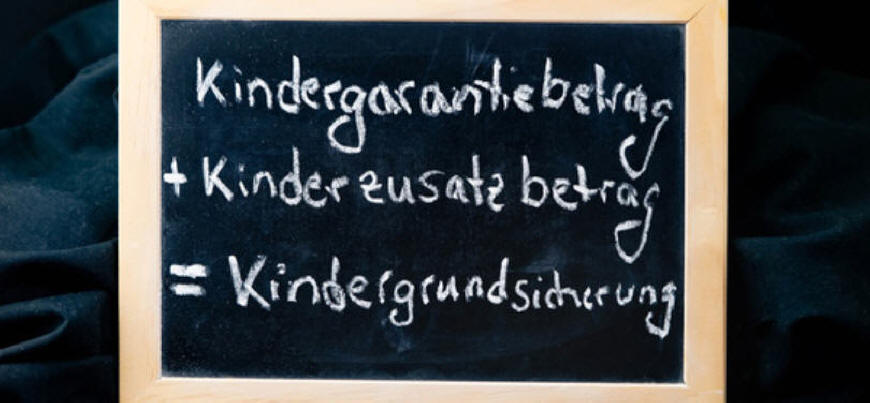 Kindergarantiebetrag
+ Kinderzusatzbetrag
= Kindergrundsicherung